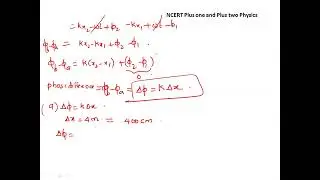 NCERT Plus one and Plus two Physics
= kx₂ - ωt + ϕ₂ - kx₁ + ωt - ϕ₁
= kx₂ - kx₁ + ϕ₂ - ϕ₁
ϕ_b - ϕ_a = k(x₂ - x₁) + (ϕ₂ - ϕ₁)
0
phase difference = ϕ_b - ϕ_a = Δϕ = kΔx
(a) Δϕ = kΔx
Δx = 4m = 400cm
Δϕ =